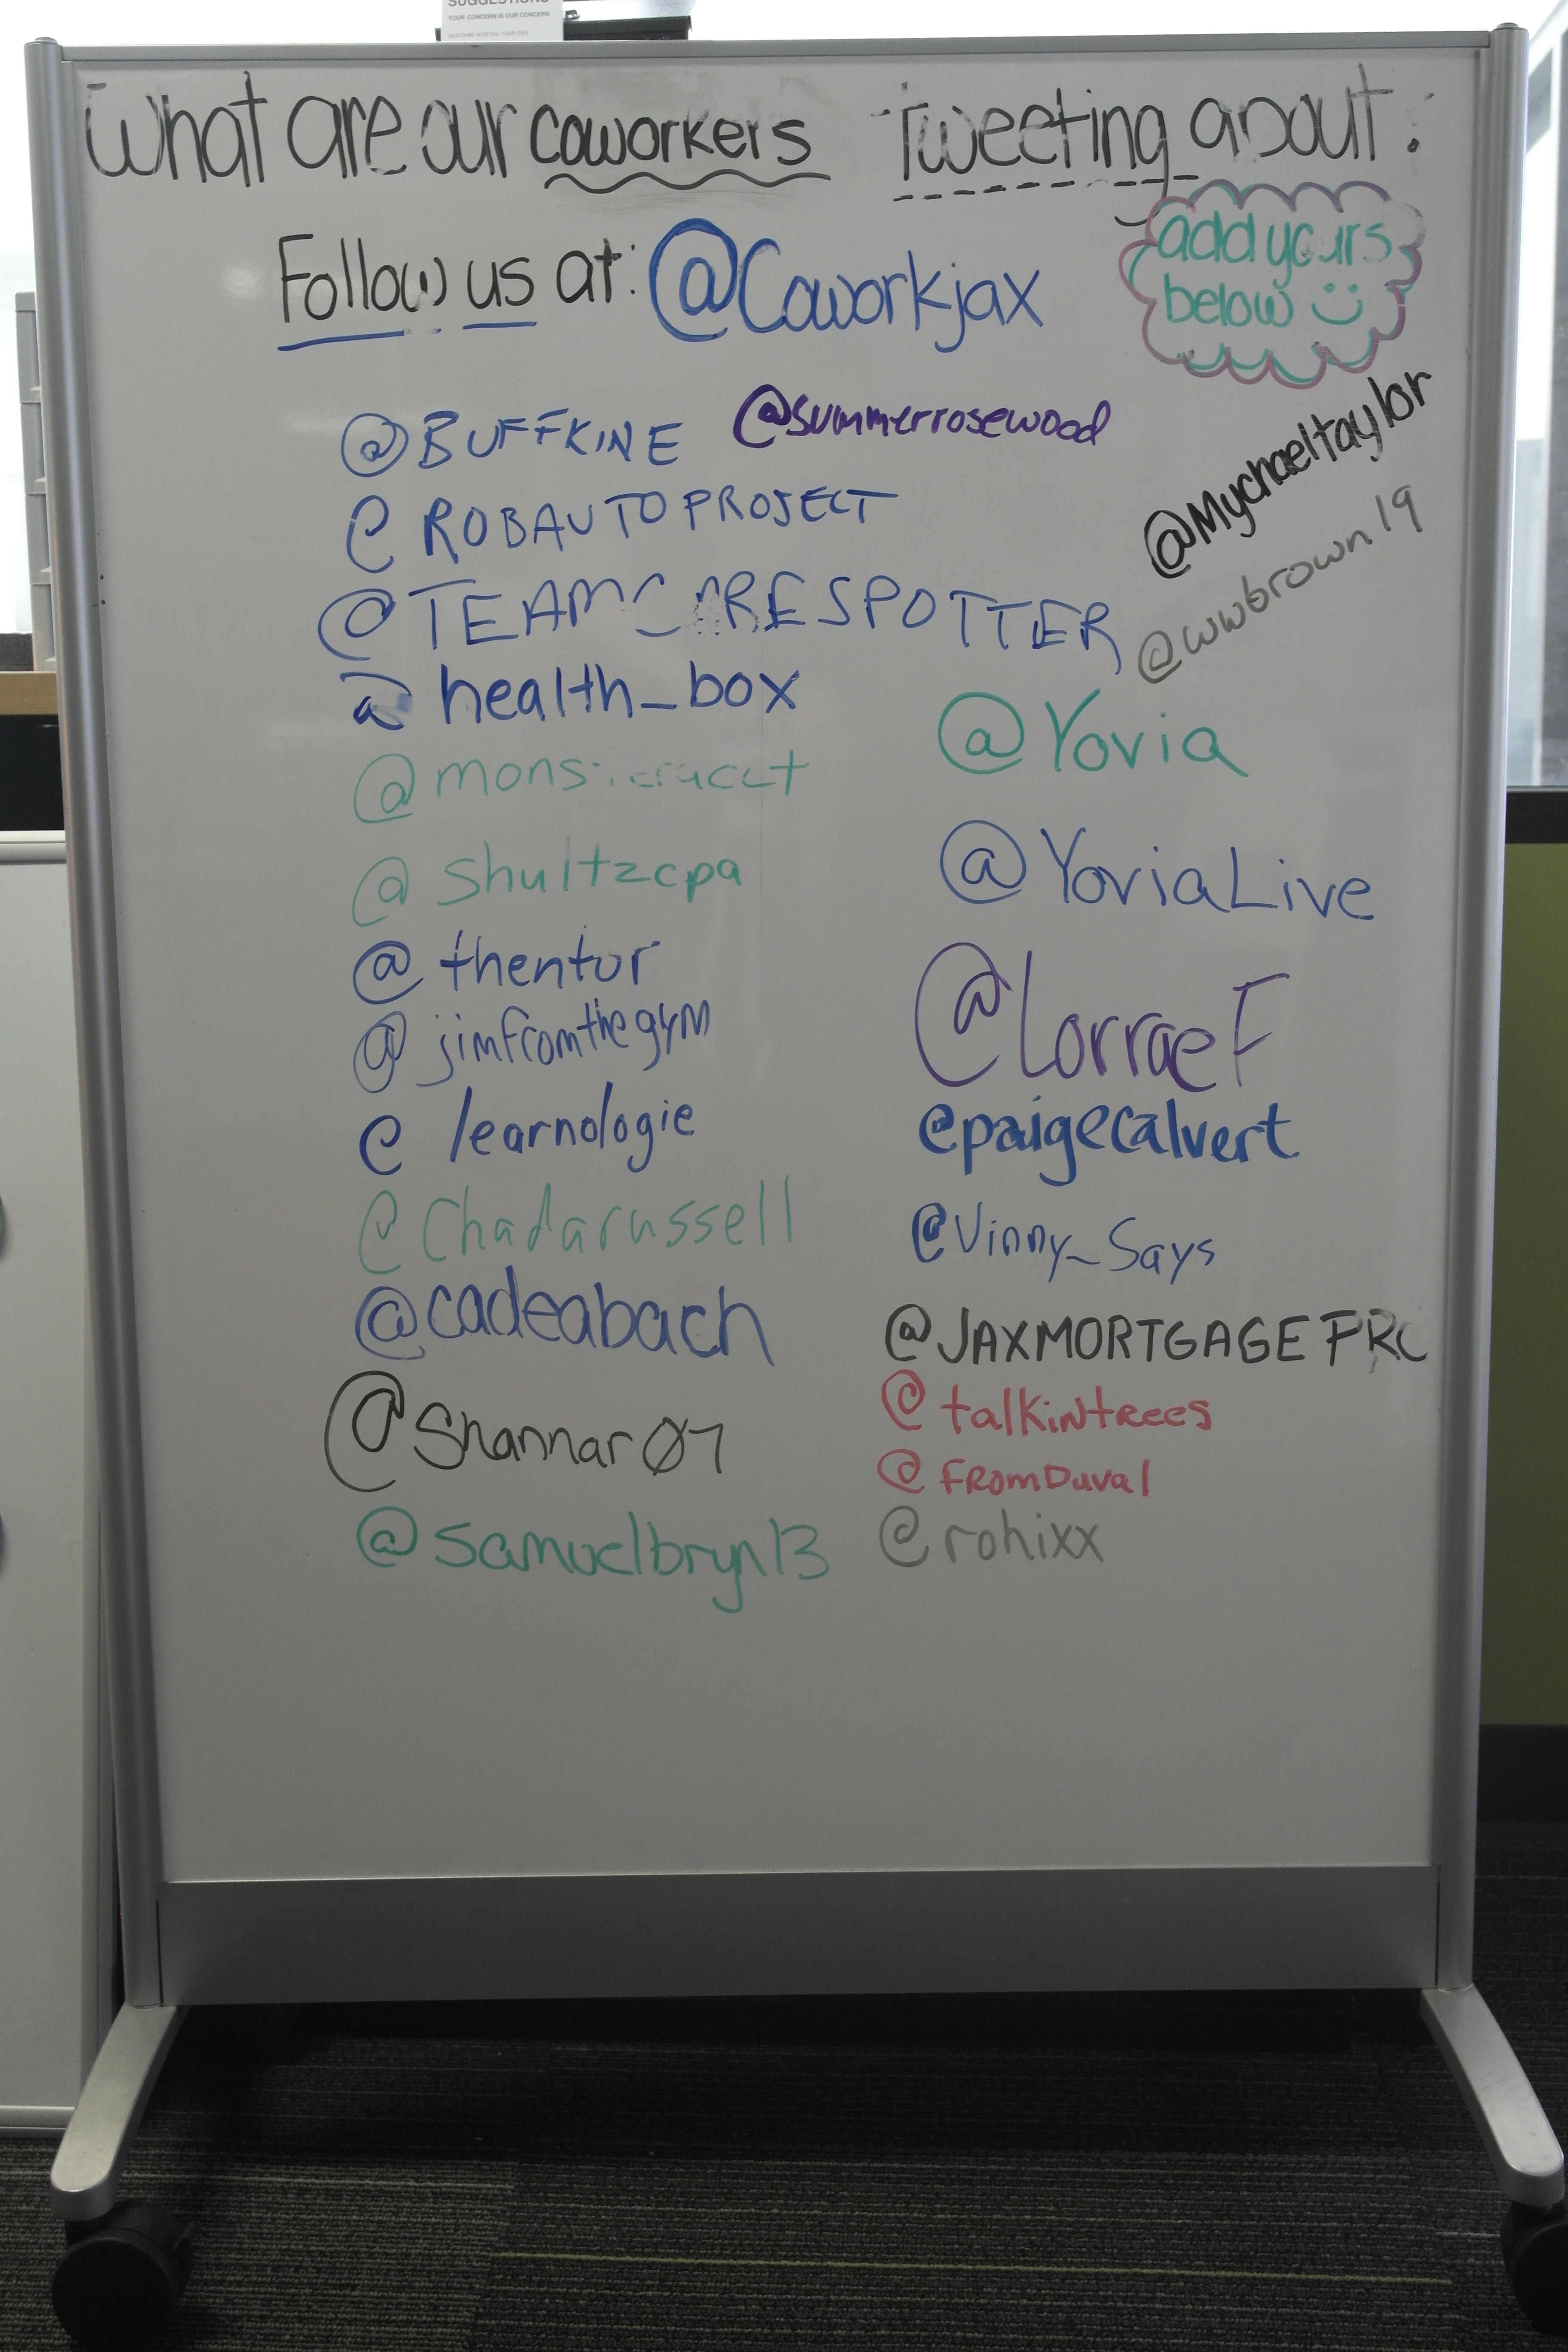 SUGGESTIONS
YOUR CONCERN IS OUR CONCERN
DESCRIBE IN DETAIL YOUR IDEA
What are our coworkers Tweeting about:
Follow us at: @Coworkjax
add yours
below
@BUFFKINE
@summerrosewood
@ROBAUTOPROJECT
@TEAMCARESPOTTER
@health_box
@shultzcpa
@thentur
@jimfromthegym
@learnologie
@Chadarussell
@cadeabach
@Shannar07
@Samuelbryn13
@Mychaeltaylor
@wwbrown19
@Yovia
@YoviaLive
@LorraeF
@paigecalvert
@Vinny_Says
@JAXMORTGAGEPRO
@talkintrees
@FROMDuval
@rohixx